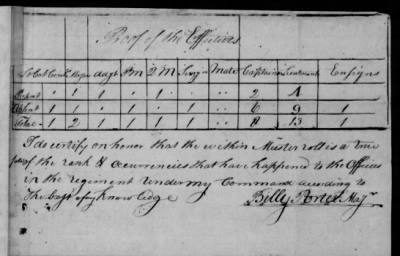 Proof of the Effectives
Lt Col Comdt Major Adjt P M Q M Surgn Mate Captains Lieutenants Ensigns
Present 1 1 1 1 1 2 4
Absent 1 1 6 9 1
Total 1 2 1 1 1 1 8 13 1
I do certify on honor that the within Muster roll is a true
of the rank & occurrencies that have happened to the Officers
in the regiment under my Command according to
The best of my Knowledge Billy Porter Majr